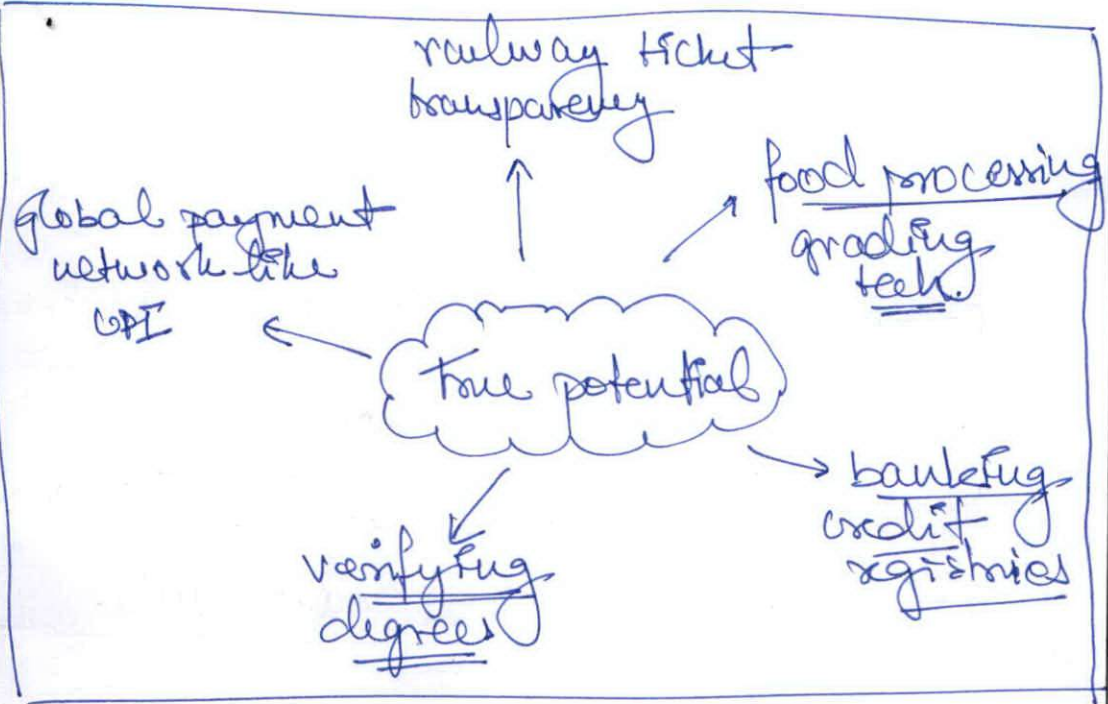 railway ticket
transparency
food processing
grading
tech.
global payment
network like
UPI
True potential
banking
credit
rgistries
verifying
degrees